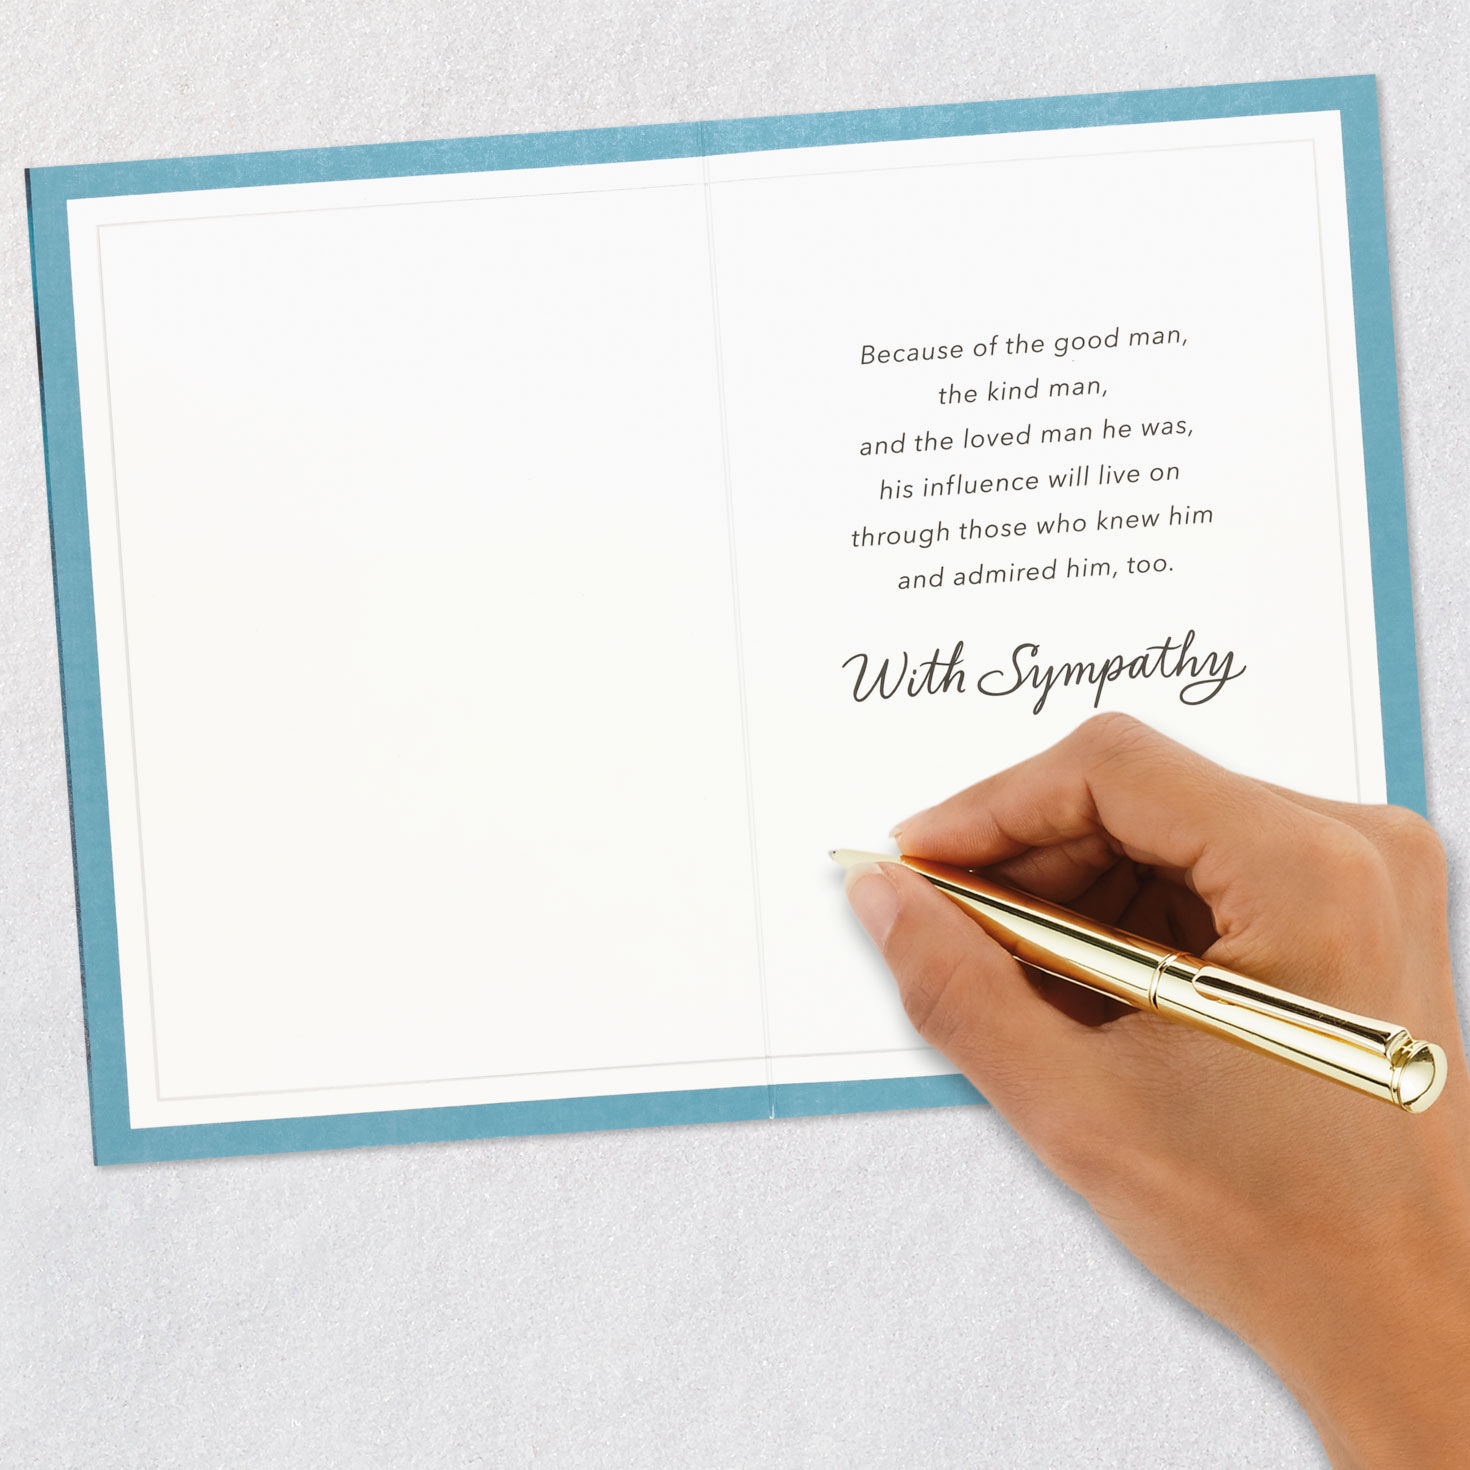 Because of the good man,
the kind man,
and the loved man he was,
his influence will live on
through those who knew him
and admired him, too.
With Sympathy